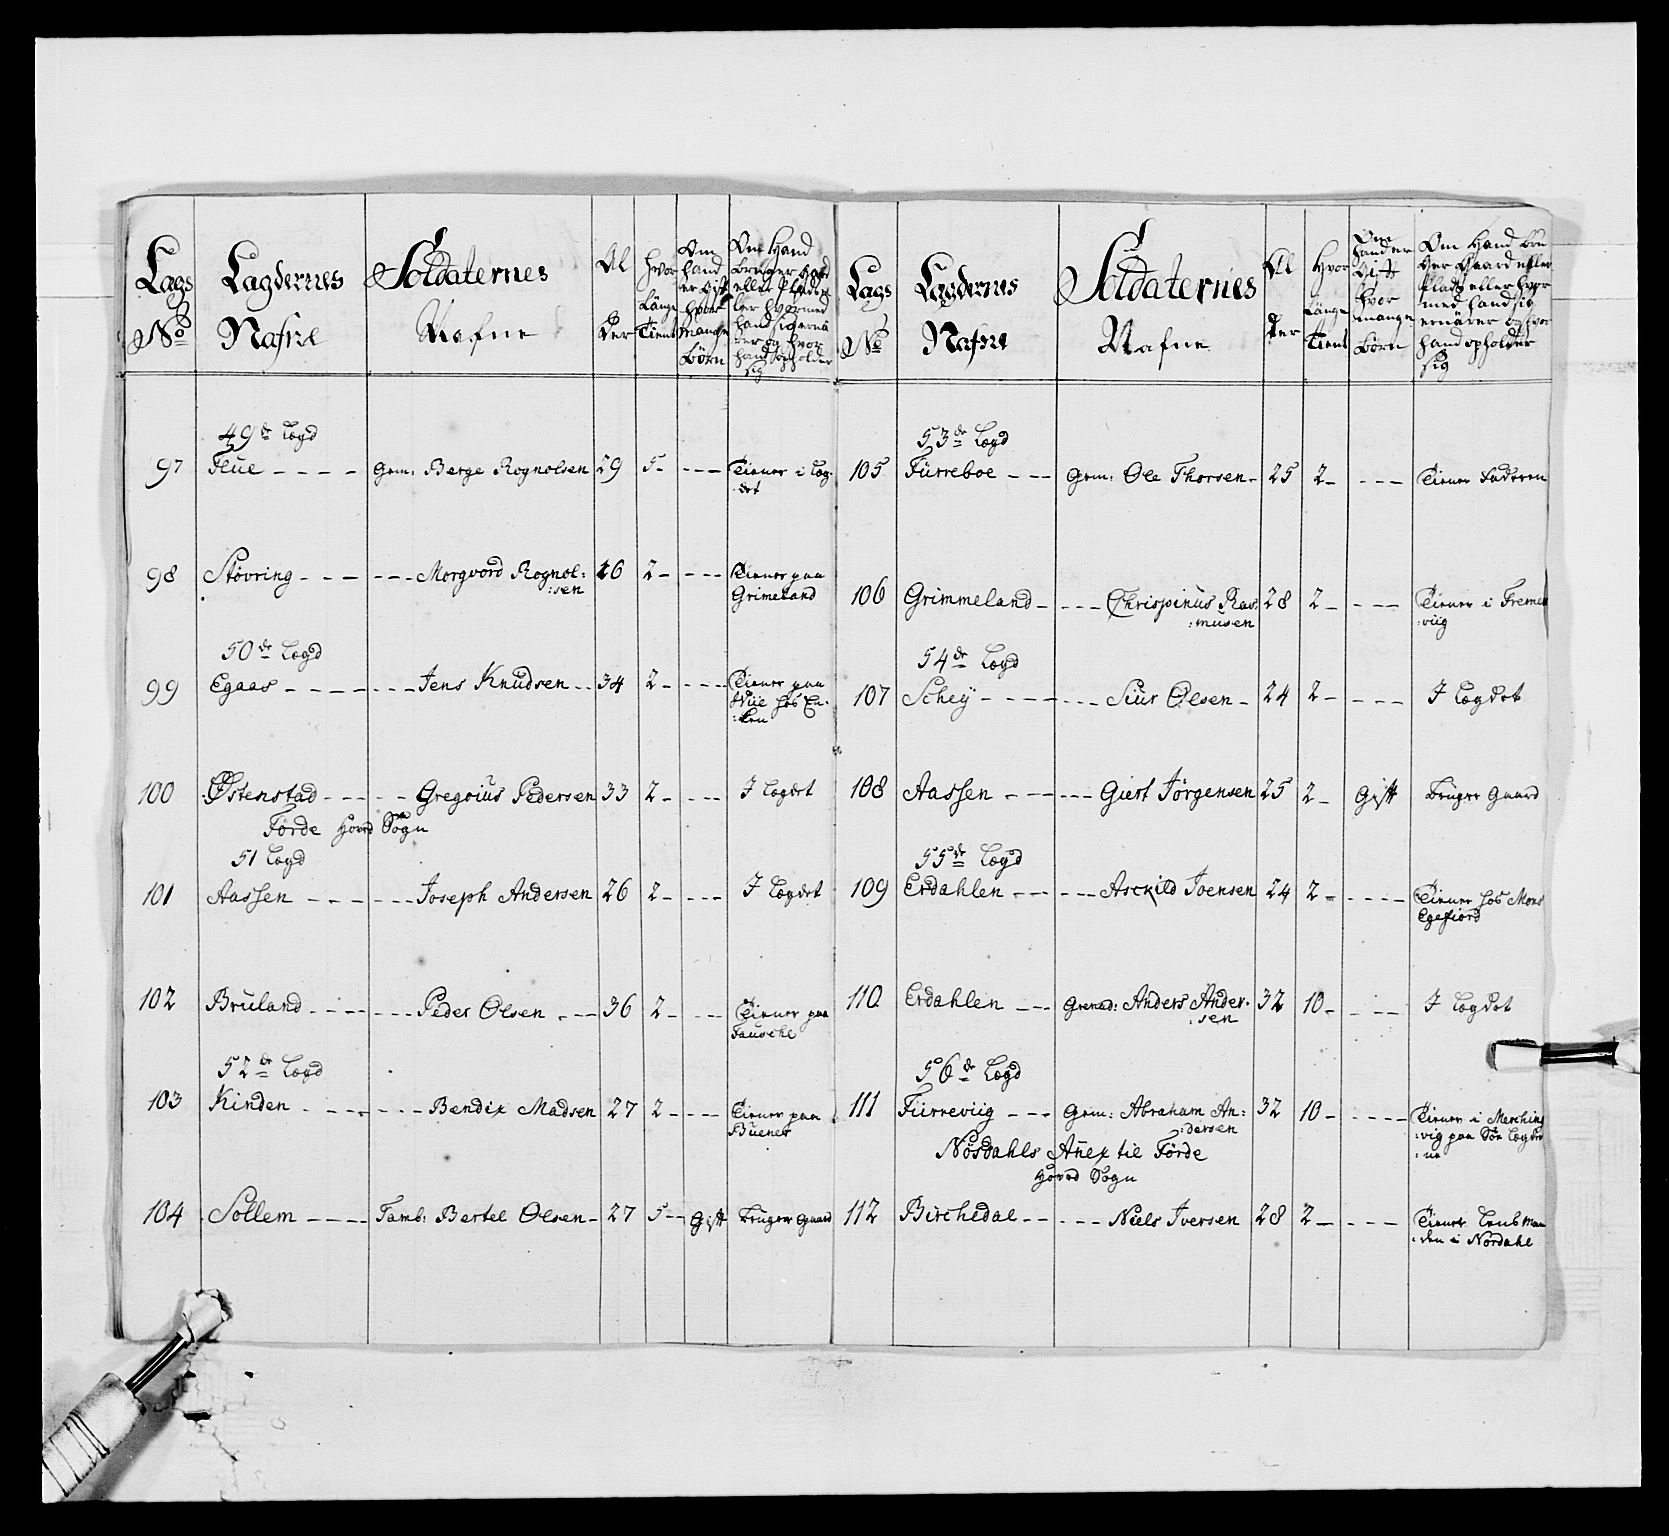 Lags No
Lagdernes Nafne
Soldaternes Nafne
Al der
Hvor Længe Tient
Om hand er Gift hvor mange Børn
Om Hand bruger Gaard eller Plads eller hvormed hand sig ernærer og hvor hand opholder sig
49de Lægd
97 Flue - - - - Grm: Berge Rognolsen 29 5 - - - - Tiener i Læg-
:det
98 Støvring - - - - - - Morgvord Rognol: 16 2 - - - - Tiener paa
:sen Grimeland
50de Lægd
99 Egaas - - - - - - - Jens Knudsen - - 34 2 - - - - Tiener paa
Wiie hos En-
:ken
100 Østenstad - - - - - Gregoius Pedersen 33 2 - - - - I Lægdet
Førde Hoved Sogn
51 Lægd
101 Aassen - - - - - - Joseph Andersen 26 2 - - - - I Lægdet
102 Bruland - - - - - - - Peder Olsen - - - 36 2 - - - - Tiener paa
Fauschl
52de Lægd
103 Kinden - - - - - - - Bendix Madsen 27 2 - - - - Tiener paa
Buener
104 Sollem - - - - Tamb: Bertel Olsen - 27 5 - - Gift bruger Gaard
Lags No
Lagdernes Nafne
Soldaternes Nafne
Al der
Hvor Længe Tient
Om hand er Gift hvor mange Børn
Om Hand bru
ger Gaard eller
Plads eller hvor
med hand sig
ernærer og hvor
hand opholder
sig
53de Lægd
105 Fürreboe - - - Grm: Ole Thorsen - 25 2 - - - - Tiener Faderen
106 Grimmeland - - - - Chrispinus Ras 28 2 - - - - Tiener i Fremer
:musen :viig
54de Lægd
107 Scheÿ - - - - - - - Siur Olsen - 24 2 - - - - I Lægdet
108 Aassen - - - - - - Giert Jørgensen 25 2 - Gift bruger Gaard
55de Lægd
109 Erdahlen - - - - - - Asckild Joensen 24 2 - - - - - Tiener hos Mons
Egefiord
110 Erdahlen - - - Grenad: Anders Ander- 32 10 - - - - I Lægdet
:sen
56de Lægd
111 Fürreviig - - - Grm: Abraham An: 32 10 - - - - - Tiener i Merching
:dersen :vig paa Søe Lægder
:ne
Nøsdahls Añex til Førde
Hoved Sogn
112 Birchedal - - - - - Niels Iversen 28 2 - - - - Tiener Lensman
:den i Nordahl